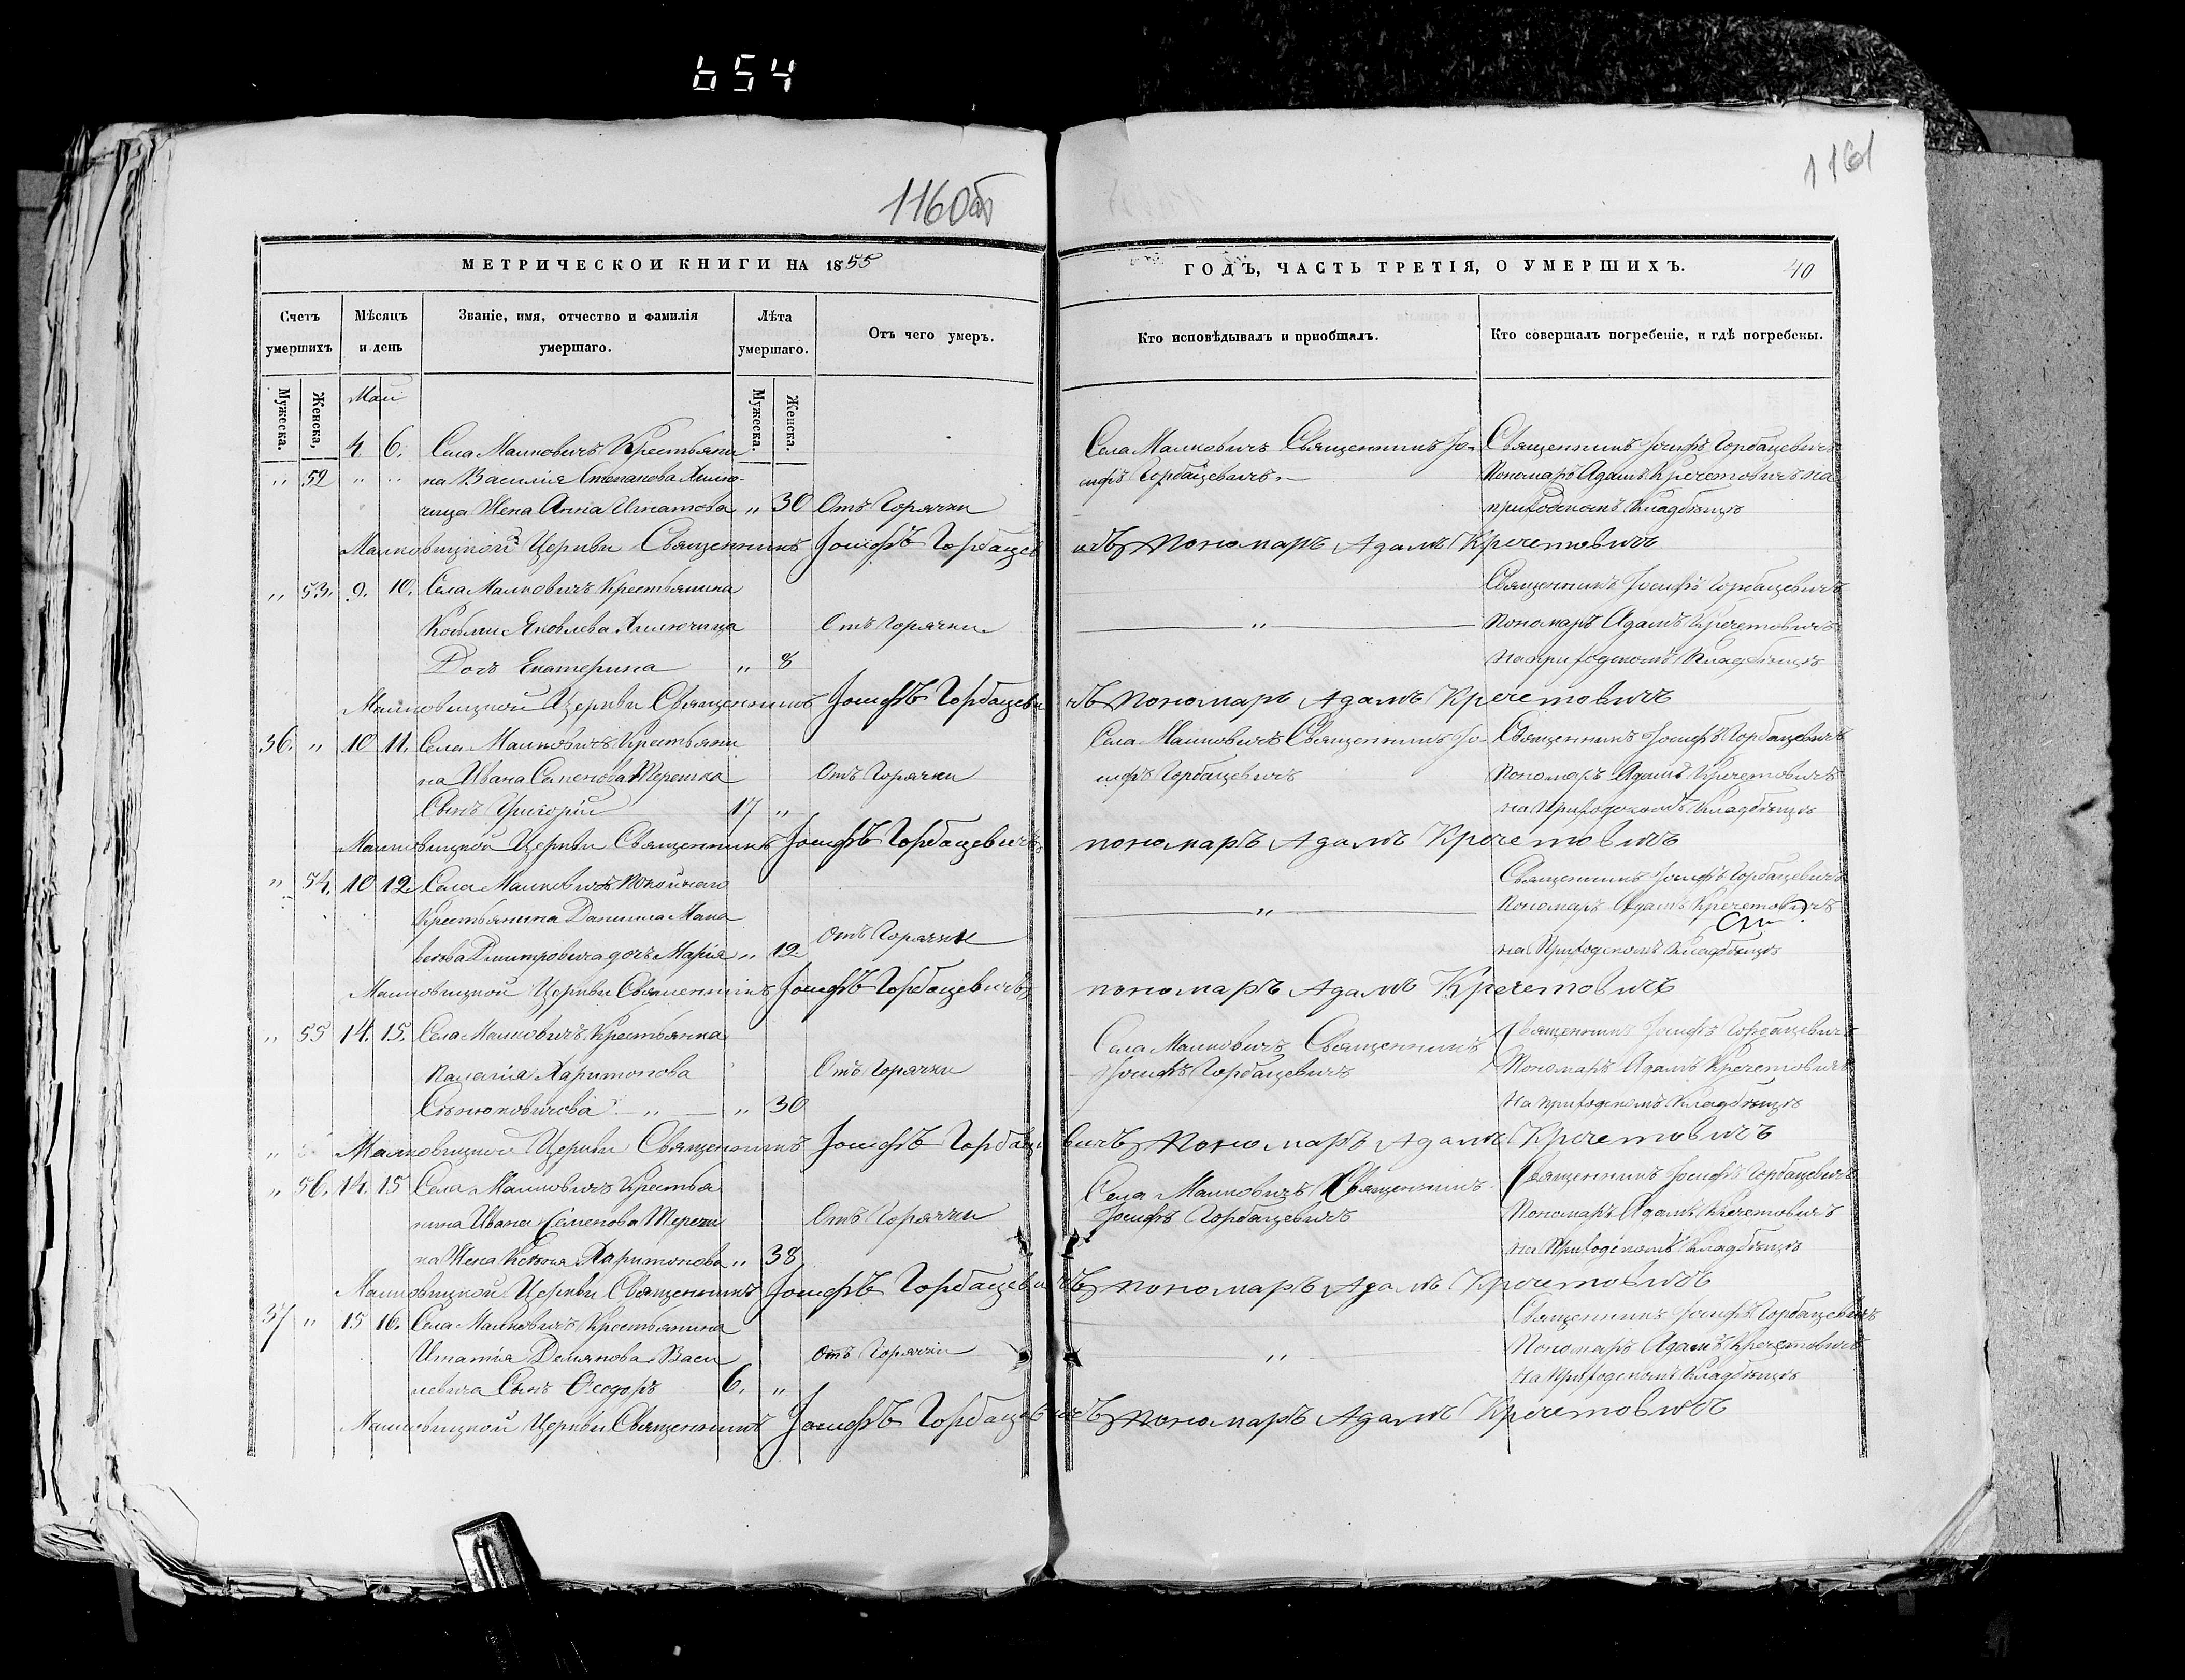 654
1160об
1161
МЕТРИЧЕСКОЙ КНИГИ НА 1855
ГОДЪ, ЧАСТЬ ТРЕТІЯ, О УМЕРШИХЪ. 40
Счетъ умершихъ
Мѣсяцъ и день
Званіе, имя, отчество и фамилія умершаго.
Лѣта умершаго.
Отъ чего умеръ.
Кто исповѣдывалъ и приобщалъ.
Кто совершалъ погребеніе, и гдѣ погребены.
Мужеска. Женска,
Май
Мужеска. Женска.
4 6. Села Малковичъ Крестьяни Села Малковичъ Священникъ Іо- Священникъ Іосифъ Горбацевичъ
„ 52 „ „ на Василія Степанова сифъ Горбацевичъ. Пономарь Адамъ Кречетовичъ на
жена Анна Игнатова „ 30 Отъ Горячки приходскомъ Кладбищѣ
Малковицкой Церкви Священникъ Іосифъ Горбацевичъ Пономаръ Адамъ Кречетовичъ
„ 53. 9. 10. Села Малковичъ Крестьянина Священникъ Іосифъ Горбацевичъ
Яковлева Отъ Горячки „ Пономаръ Адамъ Кречетовичъ
Дочь Екатерина „ 8 на приходскомъ Кладбищѣ
Малковицкой Церкви Священникъ Іосифъ Горбацевичъ Пономаръ Адамъ Кречетовичъ
36. „ 10 11. Села Малковичъ Крестьяни Села Малковичъ Священникъ Іо- Священникъ Іосифъ Горбацевичъ
на Ивана Семенова Отъ Горячки сифъ Горбацевичъ Пономаръ Адамъ Кречетовичъ
Сынъ Григорій 17 „ на Приходскомъ Кладбищѣ
Малковицкой Церкви Священникъ Іосифъ Горбацевичъ пономаръ Адамъ Кречетовичъ
„ 54. 10 12 Села Малковичъ покойнаго Священникъ Іосифъ Горбацевичъ
Крестьянина Даниила „ Пономаръ Адамъ Кречетовичъ
Дмитровича дочь Марія „ 12 Отъ Горячки на Приходскомъ Кладбищѣ
Малковицкой Церкви Священникъ Іосифъ Горбацевичъ пономаръ Адамъ Кречетовичъ
„ 55 14. 15. Села Малковичъ Крестьянка Села Малковичъ Священникъ Священникъ Іосифъ Горбацевичъ
Харитонова Отъ Горячки Іосифъ Горбацевичъ Пономаръ Адамъ Кречетовичъ
„ „ 30 На приходскомъ Кладбищѣ
„ Малковицкой Церкви Священникъ Іосифъ Горбацевичъ Пономаръ Адамъ Кречетовичъ
„ 56. 14. 15 Села Малковичъ Крестья Села Малковичъ Священникъ Священникъ Іосифъ Горбацевичъ
нина Ивана Семенова Отъ Горячки Іосифъ Горбацевичъ Пономаръ Адамъ Кречетовичъ
Жена Харитонова „ 38 на Приходскомъ Кладбищѣ
Малковицкой Церкви Священникъ Іосифъ Горбацевичъ пономаръ Адамъ Кречетовичъ
37 „ 15 16. Села Малковичъ Крестьянина Священникъ Іосифъ Горбацевичъ
Игнатія Демянова Васи Отъ Горячки „ Пономаръ Адамъ Кречетовичъ
левича Сынъ Ѳеодоръ 6. „ На Приходскомъ Кладбищѣ
Малковицкой Церкви Священникъ Іосифъ Горбацевичъ пономаръ Адамъ Кречетовичъ